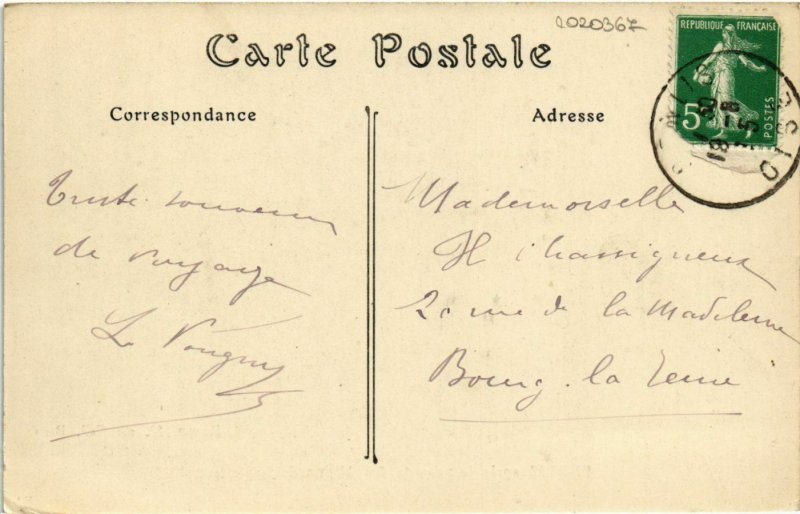 2020367
Carte Postale
Correspondance
Adresse
REPUBLIQUE FRANÇAISE
5
POSTES
Triste souvenir
de voyage
Mademoiselle
H Chassigneux
20 rue de la Madeleine
Bourg. la Reine